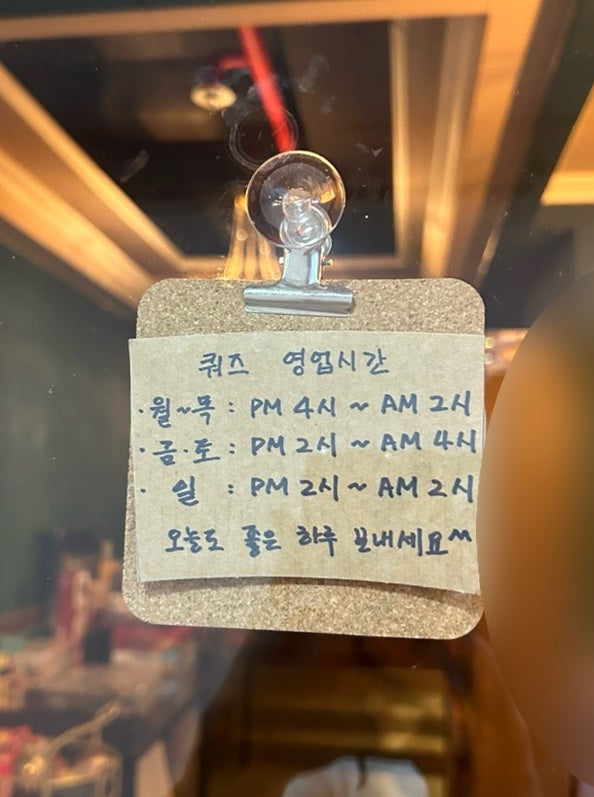 퀴즈 영업시간
·월~목 : PM 4시 ~ AM 2시
·금·토 : PM 2시 ~ AM 4시
· 일 : PM 2시 ~ AM 2시
오늘도 좋은 하루 보내세요^^